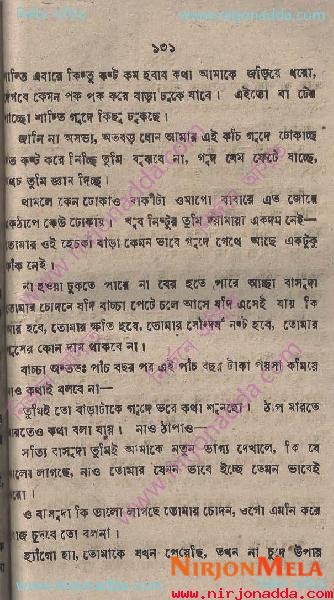 ১৩১
শান্তি এবারে কিন্তু কষ্ট কম হবার কথা আমাকে জড়িয়ে ধরো,
দেখবে কেমন পক পক করে বাড়া ঢুকে যাবে। এইতো বা টের
পাচ্ছো শান্তি গুদে কিছু ঢুকছে।
জানি না অসভ্য, অতবড় ধোন আমার এই কচি গুদে ঢোকাচ্ছে
কত কষ্ট করে নিচ্ছি তুমি বুঝবে না, গুদ যেন ফেটে যাচ্ছে,
অথচ তুমি জ্ঞান দিচ্ছ।
থামলে কেন ঢোকাও বাকীটা ওমাগো বাবারে এত জোরে
একঠাপে কেউ ঢোকায়। খুব নিষ্টুর তুমি দয়ামায়া একদম নেই—
তোমার ওই হোৎকা বাড়া কেমন ভাবে গুদে গেথে আছে একটুকু
ফাঁক নেই।
না হাওয়া ঢুকতে পারে না বের হতে পারে আচ্ছা বাসুদা
তোমার চোদনে যদি বাচ্চা পেটে চলে আসে যদি এসেই যায় কি
আর হবে, তোমার ক্ষতি হবে, তোমার সৌন্দর্য নষ্ট হবে, তোমার
গুদের কোন দাম থাকবে না।
বাচ্চা অন্ততঃ পাঁচ বছর পর এই পাঁচ বছর টাকা পয়সা কামিয়ে
নাও কথাই বলবে না—
তুমিই তো বাড়াটাকে গুদে ভরে কথা শুনছো। ঠাপ মারতে
মারতেও কথা বলা যায়। নাও ঠাপাও—
সত্যি বাসুদা তুমিই আমাকে নতুন ভাগ্য দেখালে, কি যে
ভালো লাগছে, নাও তোমার যেমন ভাবে ইচ্ছে তেমন ভাবেই
করো।
ও বাসুদা কি ভালো লাগছে তোমার চোদন, ওগো এমনি করে
রোজ চুদবে তো বলনা।
হ্যাঁগো হ্যা, তোমাকে যখন পেয়েছি, তখন না চুদে উপায়
NIRJONMELA
www.nirjonadda.com